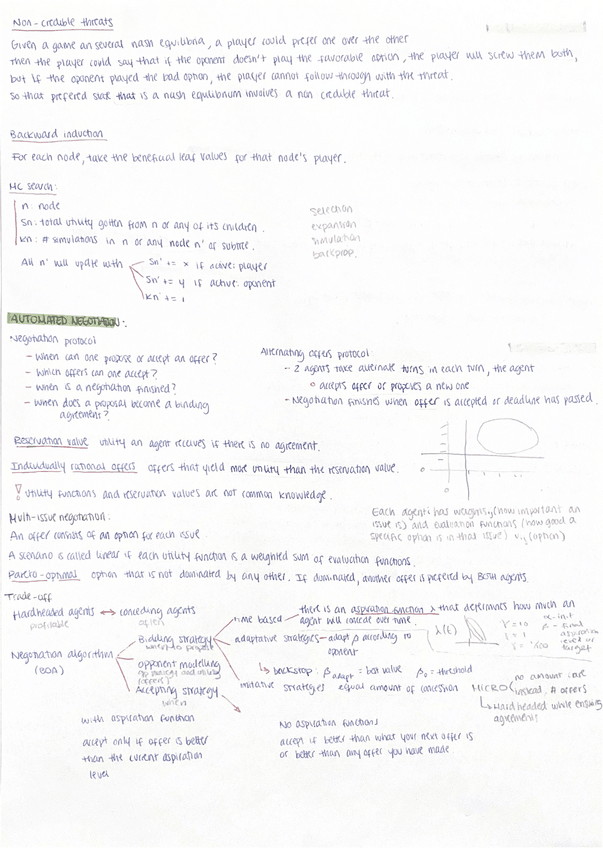 Non-credible threats
Given a game an several nash equilibria, a player could prefer one over the other
Then the player could say that if the oponent doesn't play the favorable option, the player will screw them both,
but if the oponent played the bad option, the player cannot follow through with the threat.
So that prefered state that is a nash equilibrium involves a non credible threat.
Backward induction
For each node, take the beneficial leaf values for that node's player.
MC search:
n: node
Sn: total utility gotten from n or any of its children.
kn: # simulations in n or any node n' of subtree.
All n' will update with
Sn' += x if active: player
Sn' += y if active: oponent
kn' += 1
selection
expantion
simulation
backprop.
AUTOMATED NEGOTIATION.
Negotiation protocol
- When can one propose or accept an offer?
- Which offers can one accept?
- When is a negotiation finished?
- When does a proposal become a binding
agreement?
Alternating offers protocol
- 2 agents take alternate turns in each turn, the agent
o accepts offer or proposes a new one
- Negotiation finishes when offer is accepted or deadline has passed.
Reservation value utility an agent receives if there is no agreement.
Individually rational offers offers that yield more utility than the reservation value.
! Utility functions and reservation values are not common knowledge.
0
0
Multi-issue negotiation:
An offer consists of an option for each issue
A scenario is called linear if each utility function is a weighted sum of evaluation functions.
Each agent i has weights (how important an
issue is) and evaluation functions (how good a
specific option is in that issue) (option)
Pareto-optimal option that is not dominated by any other. If dominated, another offer is prefered by BOTH agents.
Trade-off
Hardheaded agents ↔ conceding agents
profitable often
Negotiation algorithm
(BOA)
Bidding strategy
what to propose
opponent modelling
Accepting strategy
when
time based - there is an aspiration function λ that determines how much an
agent will concede over time.
adaptative strategies - adapt β according to
oponent
↳ backstop: β adapt = best value β0 = threshold
imitative strategies equal amount of concession MICRO
no amount care
instead, # offers
↳ Hardheaded while ensuring
agreements
λ(t)
γ = 10
γ = 1
γ = 1/10
α - init
β - final
aspiration
level or
target
with aspiration function
accept only if offer is better
than the current aspiration
level
No aspiration functions
accept if better than what your next offer is
or better than any offer you have made